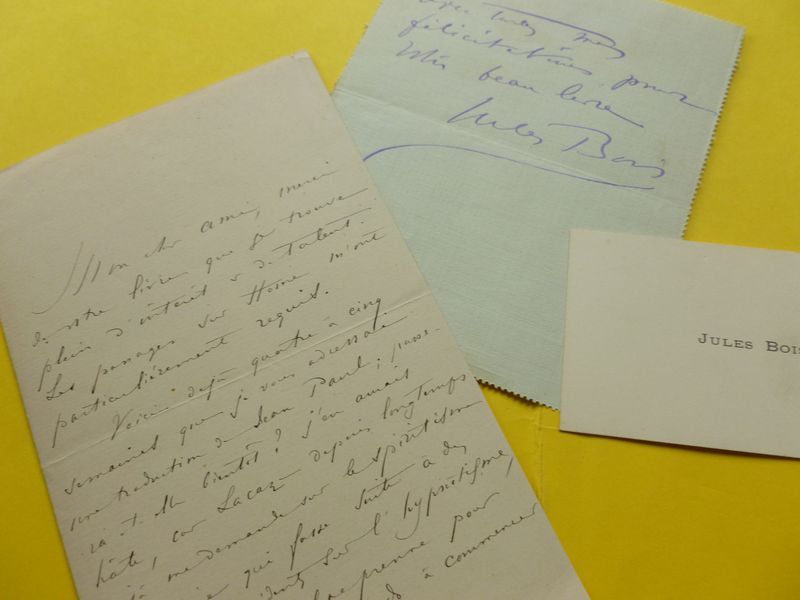 Mon cher ami, merci
de votre livre que je trouve
plein d'intérêt & de talent.
Les passages sur Home m'ont
particulièrement requis.
Voici déjà quatre à cinq
semaines que je vous adressai
une traduction de Jean Paul ; passe-
ra-t-elle bientôt ? J'en aurais
hâte, car Lacaze depuis longtemps
me demande sur le spiritisme
qui fasse suite à des
sur l'hypnotisme,
prenne pour
à commencer
avec toutes mes
félicitations pour
votre beau livre
Jules Bois
JULES BOIS